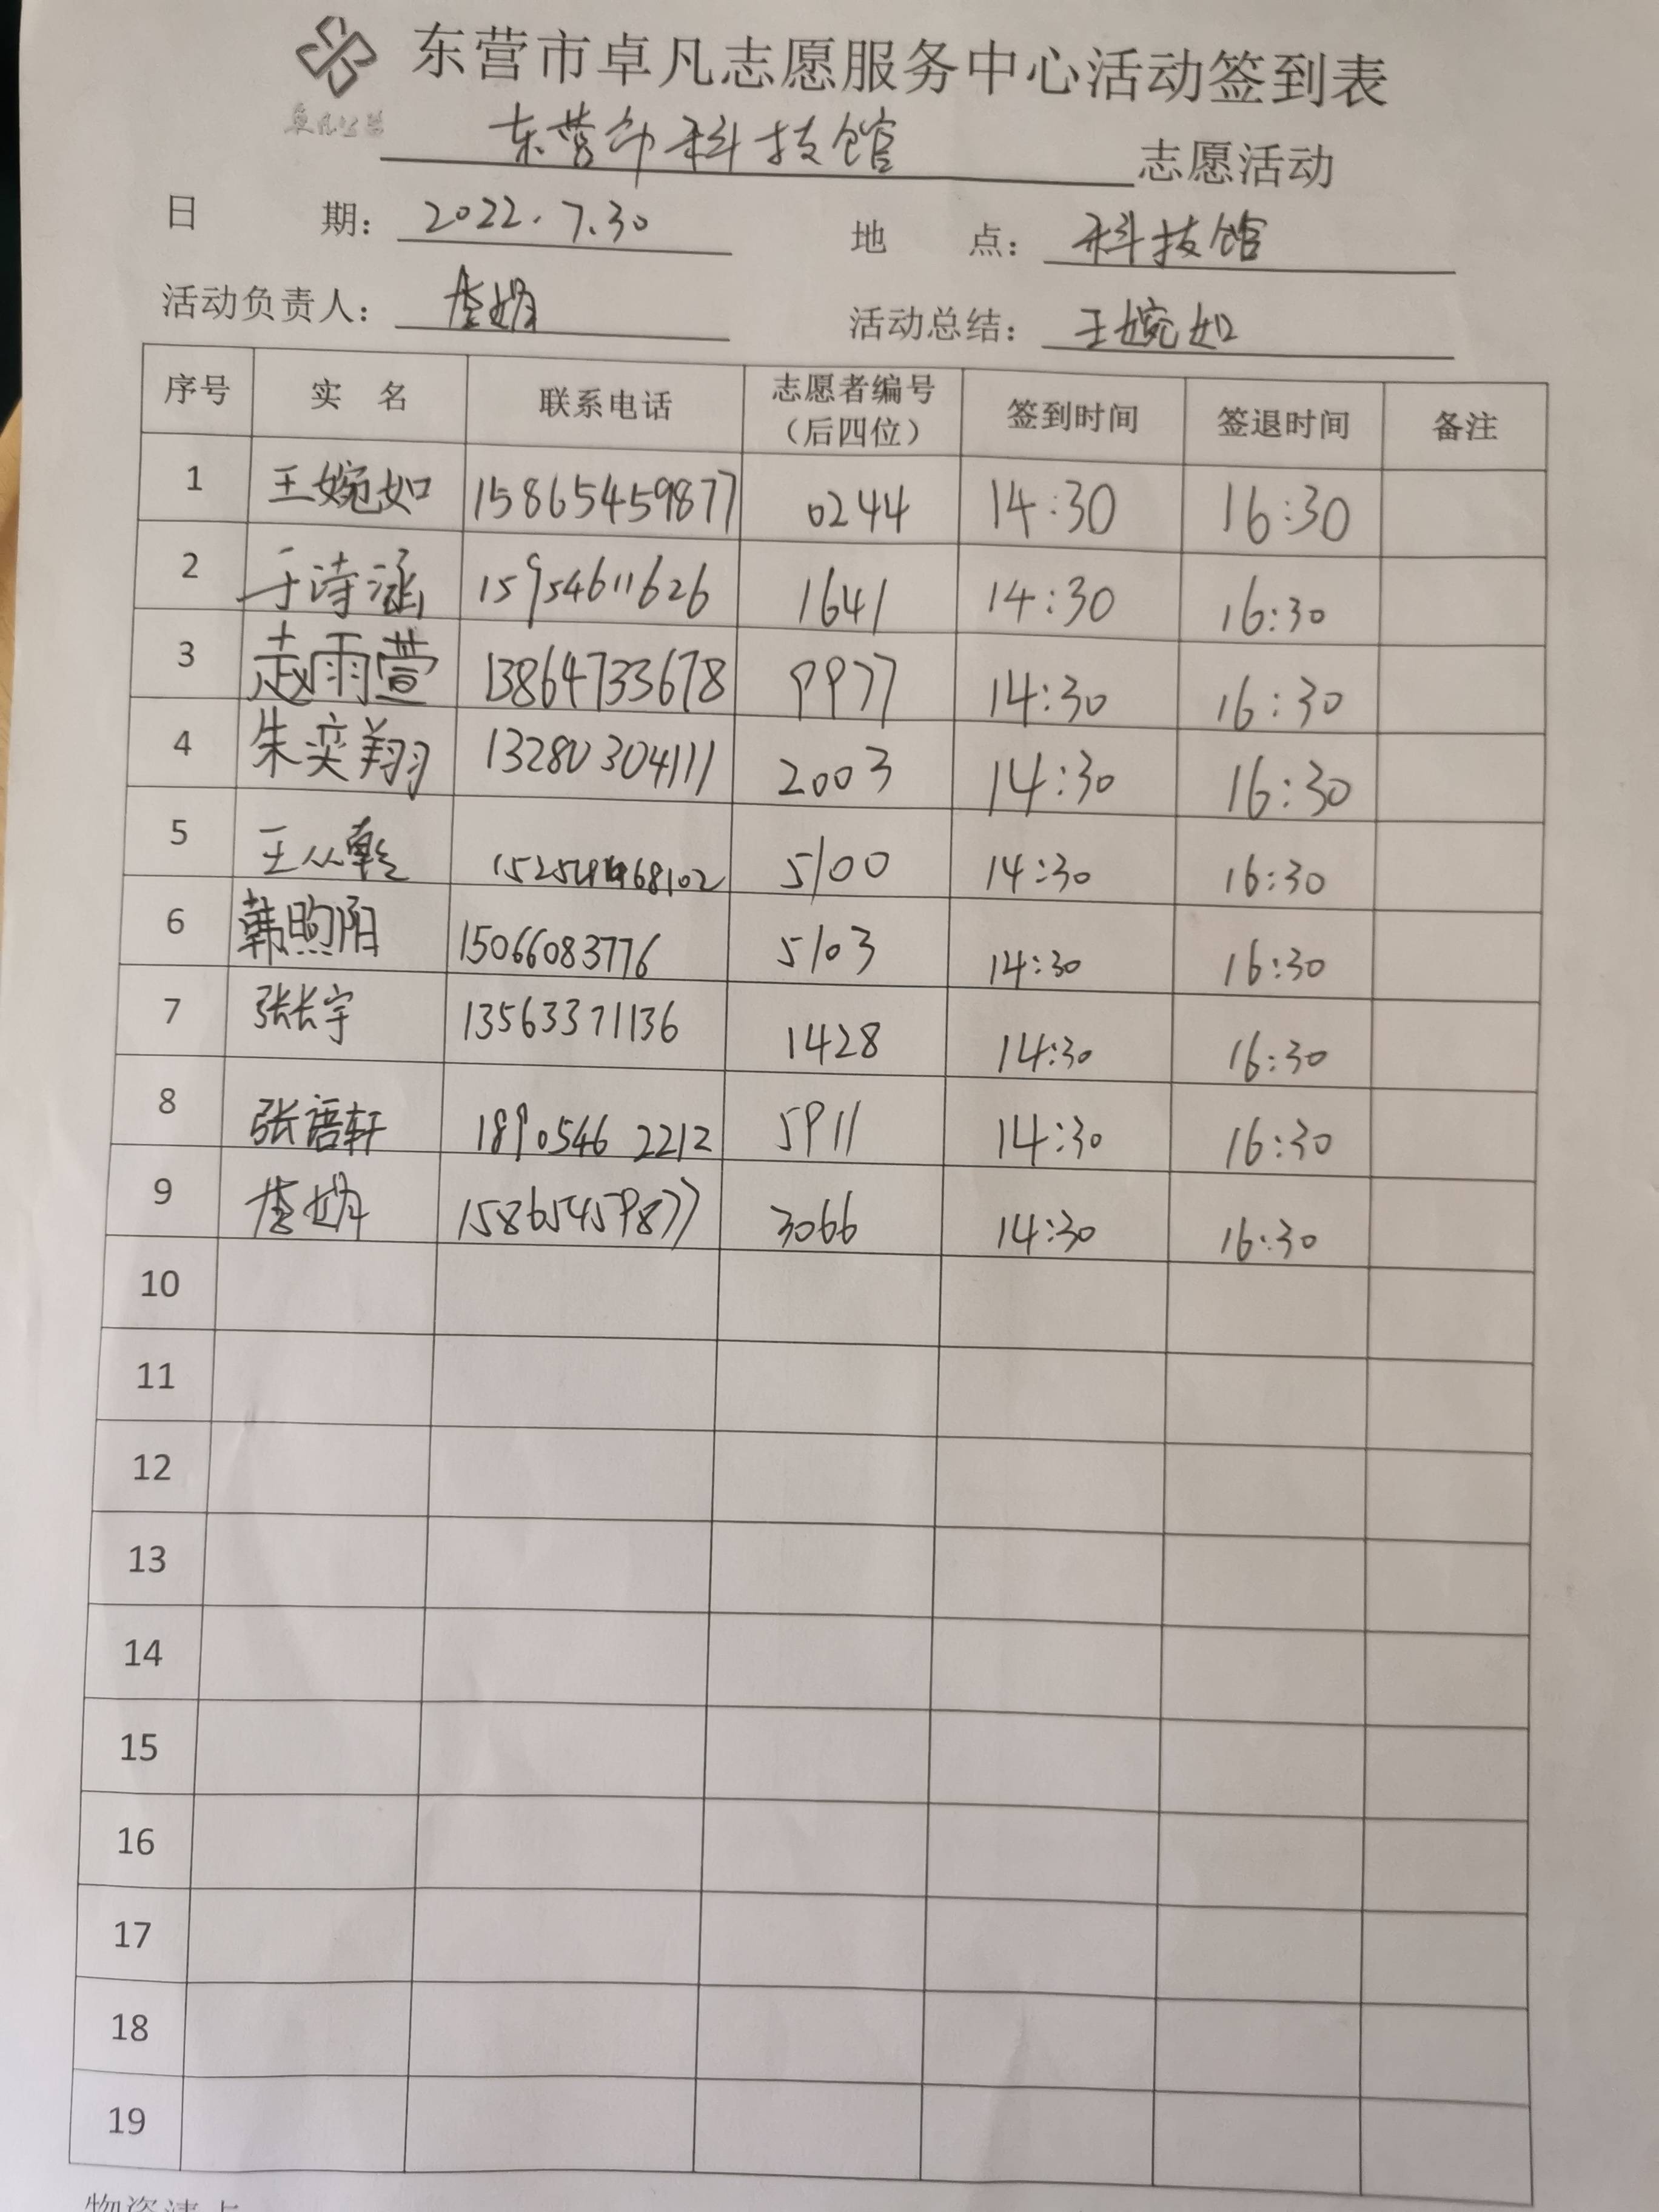 东营市卓凡志愿服务中心活动签到表
卓凡公益
东营市科技馆 志愿活动
日 期： 2022.7.30 地 点： 科技馆
活动负责人： 娟 活动总结： 王婉如
序号 实 名 联系电话 志愿者编号（后四位） 签到时间 签退时间 备注
1 王婉如 15865459877 0244 14:30 16:30
2 于诗涵 15954611626 1641 14:30 16:30
3 赵雨萱 13864733678 9977 14:30 16:30
4 朱奕翔 13280304111 2003 14:30 16:30
5 王从乾 5100 14:30 16:30
6 韩煦阳 15066083776 5103 14:30 16:30
7 张长宇 13563371136 1428 14:30 16:30
8 张语轩 18905462212 5911 14:30 16:30
9 娟 15865459877 3066 14:30 16:30
10
11
12
13
14
15
16
17
18
19
物资清点